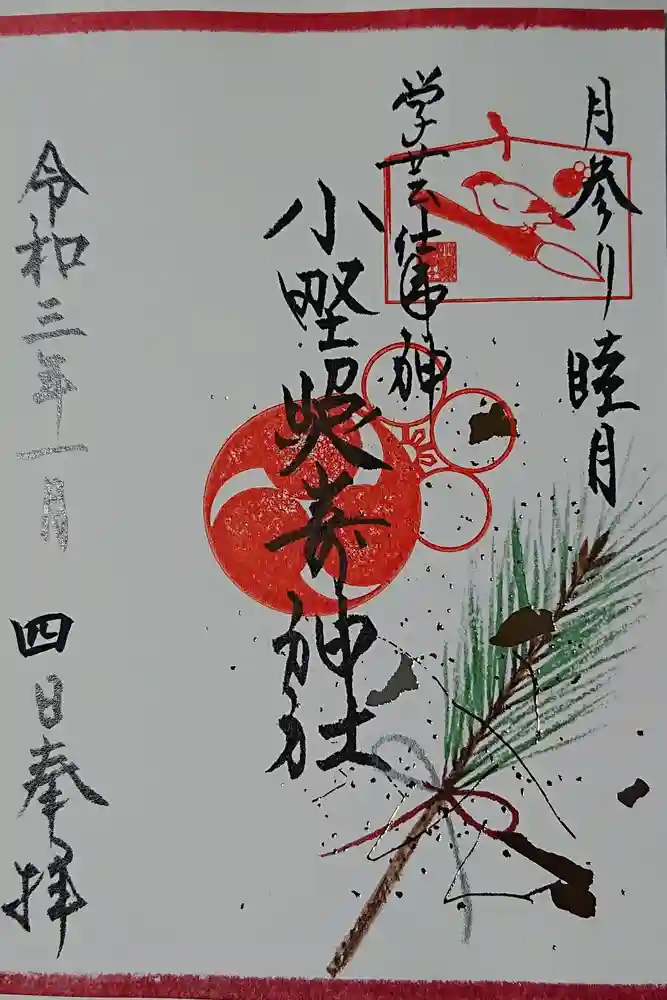 月参り 睦月
学芸仕事神
小野照崎神社
令和三年一月四日奉拝